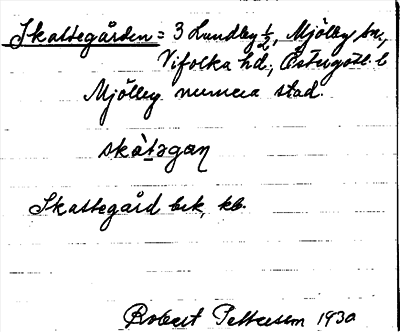 Skattegården = 3 Lundby ½, Mjölby sn.,
Vifolka hd., Östergötl. l
Mjölby numera stad.
skàtəgaɳ
Skattegård bek, kb.
Robert Pettersson 1930